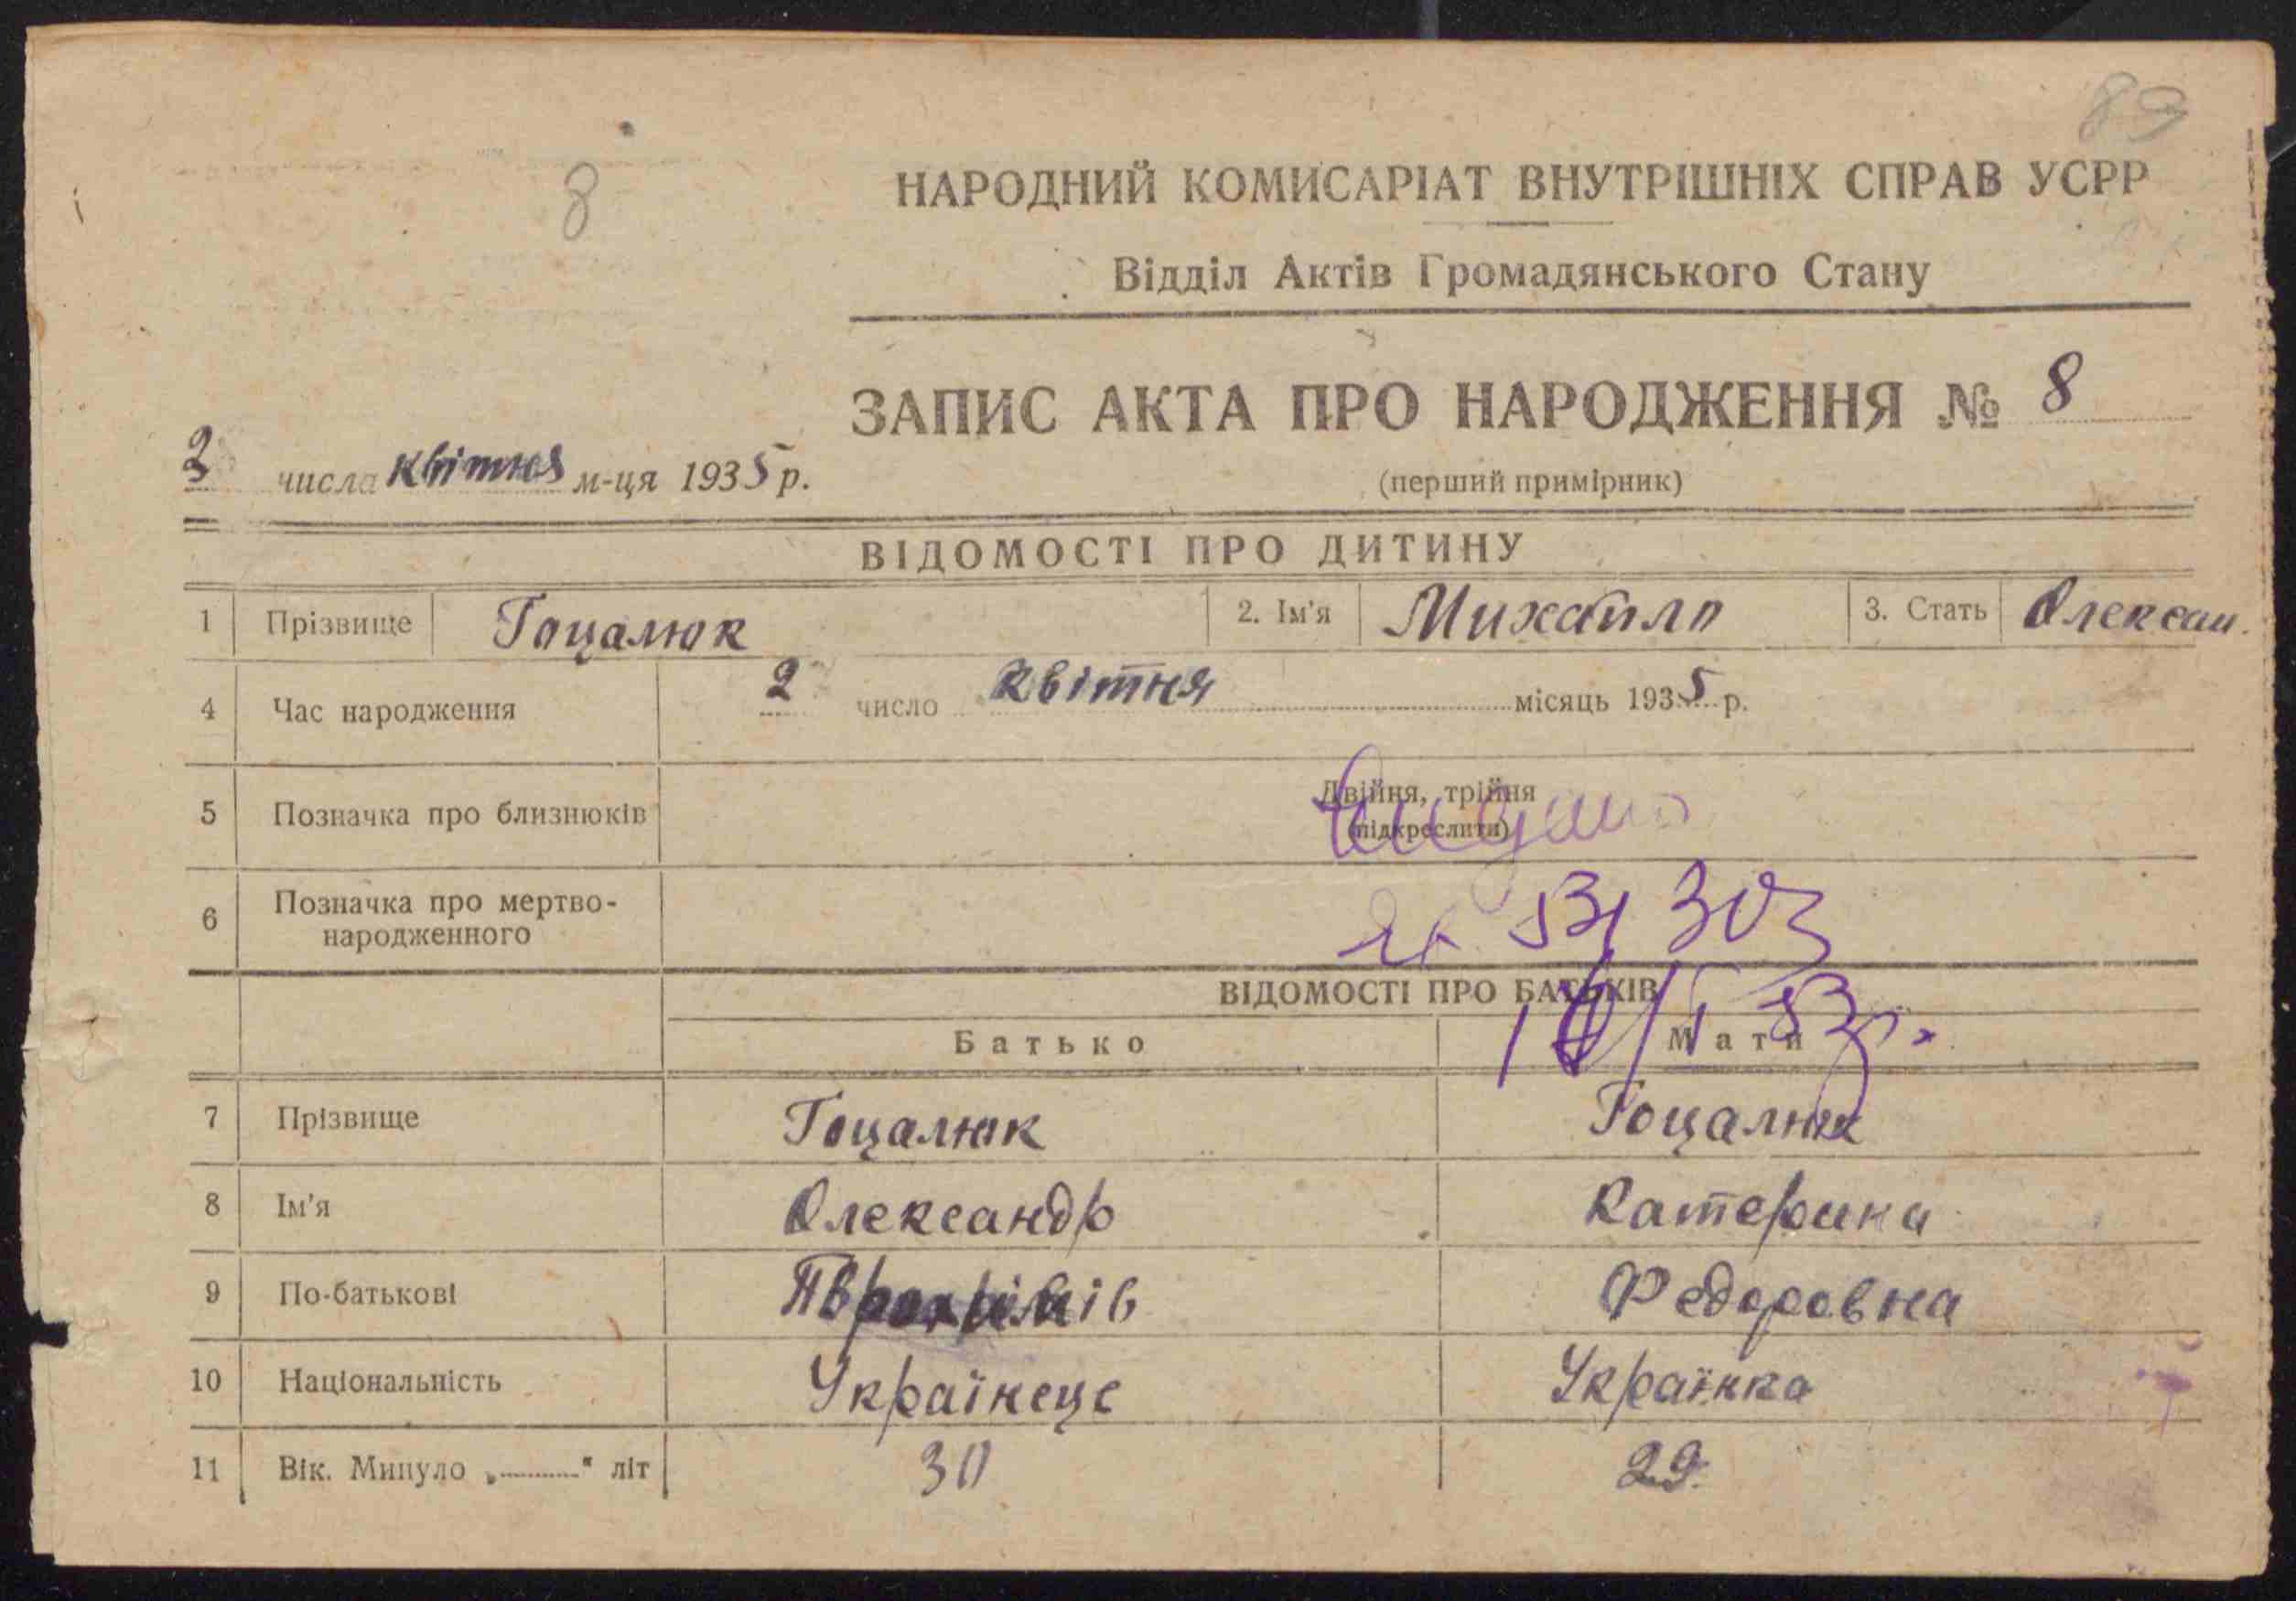 89
8
НАРОДНИЙ КОМИСАРІАТ ВНУТРІШНІХ СПРАВ УСРР
Відділ Актів Громадянського Стану
ЗАПИС АКТА ПРО НАРОДЖЕННЯ № 8
2 числа квітня м-ця 1935 р.
(перший примірник)
ВІДОМОСТІ ПРО ДИТИНУ
1 Прізвище Гоцалюк 2. Ім'я Михайло 3. Стать Олексан.
4 Час народження 2 число квітня місяць 1935 р.
5 Позначка про близнюків Двійня, трійня
(підкреслити)
6 Позначка про мертво-
народженного
ВІДОМОСТІ ПРО БАТЬКІВ
Батько Мати
7 Прізвище Гоцалюк Гоцалюк
8 Ім'я Олександр Катерина
9 По-батькові Федоровна
10 Національність Українець Українка
11 Вік. Минуло „ “ літ 30 29